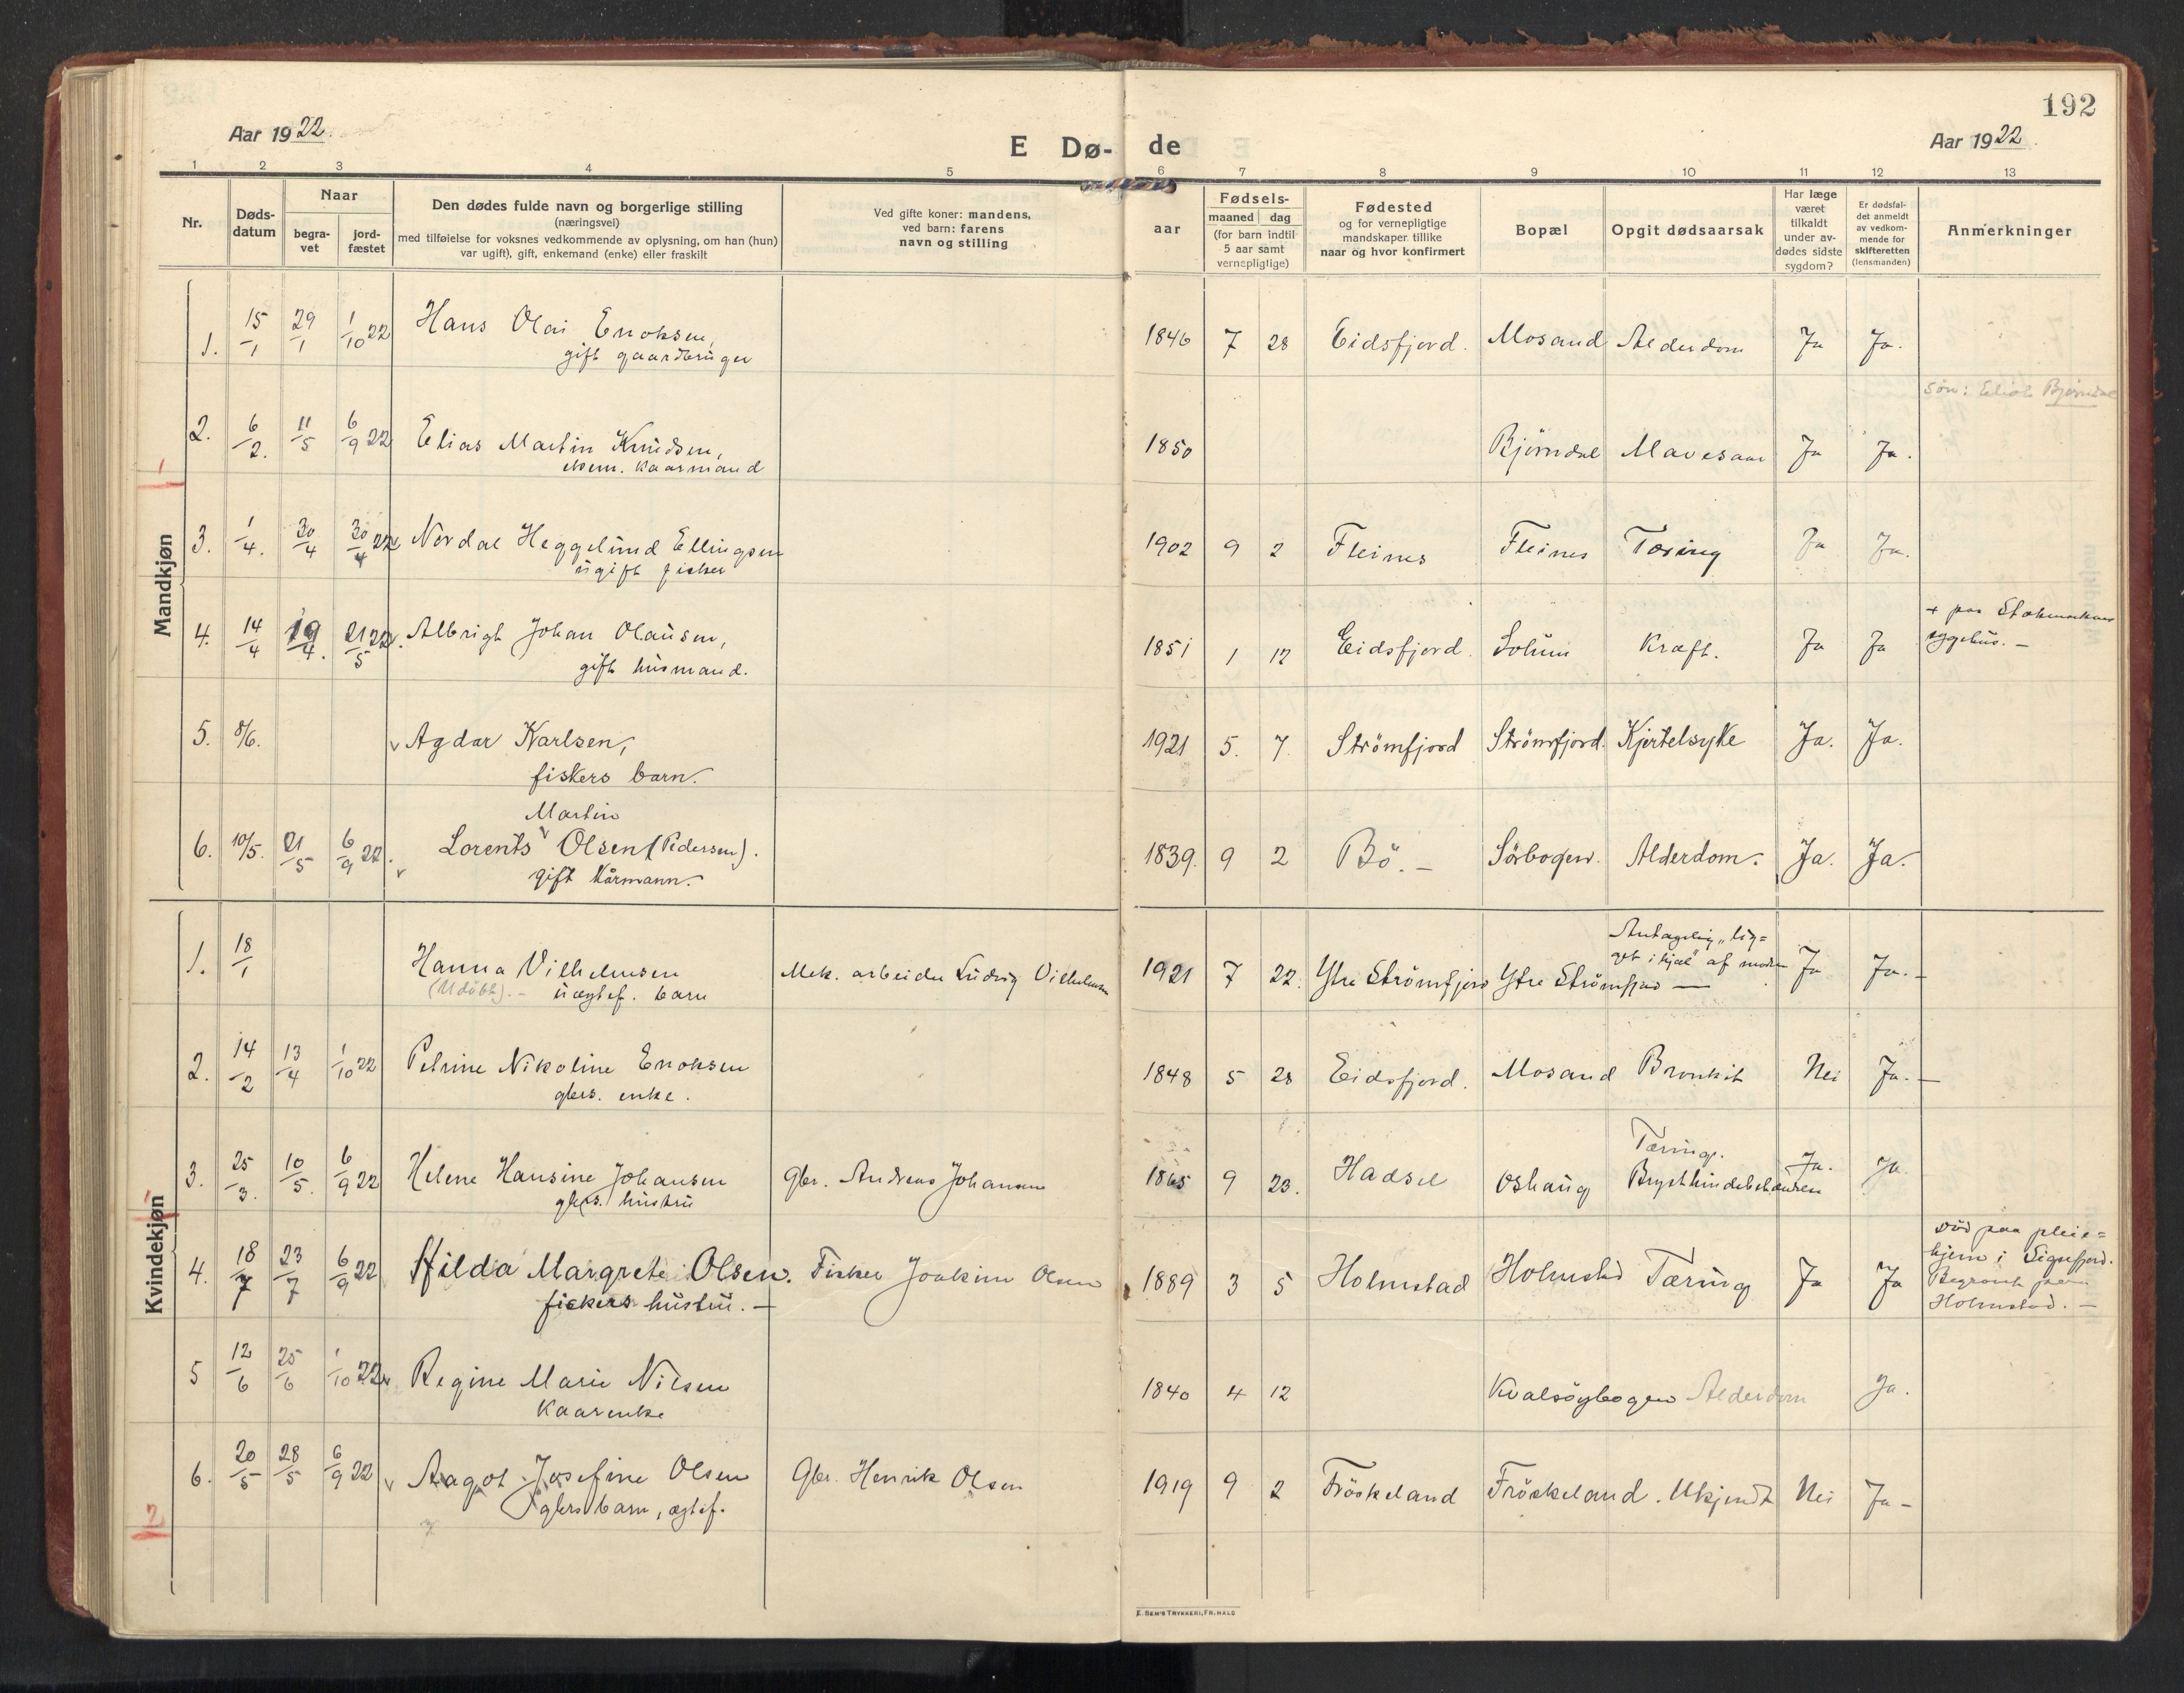 192
Aar 1922.
E Dø- de
Aar 1922
1 2 3 4 5 6 7 8 9 10 11 12 13
Nr.
Døds-
datum
Naar
begra-
vet
jord-
fæstet
Den dødes fulde navn og borgerlige stilling
(næringsvei)
med tilføielse for voksnes vedkommende av oplysning, om han (hun)
var ugift), gift, enkemand (enke) eller fraskilt
Ved gifte koner: mandens,
ved barn: farens
navn og stilling
aar
Fødsels-
maaned dag
(for barn indtil
5 aar samt
vernepligtige)
Fødested
og for vernepligtige
mandskaper tillike
naar og hvor konfirmert
Bopæl
Opgit dødsaarsak
Har læge
været
tilkaldt
under av-
dødes sidste
sygdom?
Er dødsfal-
det anmeldt
av vedkom-
mende for
skifteretten
(lensmanden)
Anmerkninger
Mandkjøn
1. 15/1 29/1 1/10 22 Hans Olai Enoksen, 1846 7 28 Eidsfjord. Mosand Alderdom Ja Ja.
gift gaardbruger
Søn: Elias Bjørndal
2. 6/2. 11/5 6/9 22 Elias Martin Knudsen, 1850 Bjørndal Mavesaar Ja Ja.
ekem. kaarmand
3. 1/4. 30/4 30/4 22 Nordal Heggelund Ellingsen 1902 9 2 Fleines Fleines Tæring Ja Ja.
ugift fisker
4. 14/4 19/4. 21/5 22. Albrigt Johan Olausen, 1851 1 12 Eidsfjord. Kræft. Ja Ja + paa Stokmarknes
gift husmand. sygehus. —
5. 8/6. v Agdar Karlsen, 1921 5. 7. Strømfjord Strømfjord. Kjertelsyke Ja. Ja.
fiskers barn.
Martin
6. 10/5. 21/5 6/9 22. Lorents v Olsen (Pedersen). 1839. 9 2 Bö. — Sørbogen. Alderdom. Ja. Ja.
v gift kårmann.
Kvindekjøn
1. 18/1 Hanna Vilhelmsen Mek. arbeider Ludvig Vilhelmsen 1921 7 22. Ytre Strømfjord Ytre Strømfjord Antagelig "lig=
get ihjæl" af moren — Ja Ja. —
(Udöbt). — uægtef. barn
2. 14/2 13/4 1/10 22 Petrine Nikoline Enoksen 1848 5 28 Eidsfjord. Mosand Bronkit Nei Ja. —
gbrs. enke.
3. 25/3. 10/5. 6/9 22 Helene Hansine Johansen Gbr. Andreas Johansen 1865 9 23. Hadsel Oshaug Tæring. Ja. Ja.
gbrs. hustru
4. 18/7 23/7 6/9 22 Hilda Margrete Olsen. Fisker Joakim Olsen 1889 3 5 Holmstad Holmstad Tæring Ja Ja
fiskers hustru. —
Död paa pleie=
hjem i Sigerfjord.
Begravet paa
Holmstad. —
5 12/6 25/6 1/10 22 Regine Marie Nilsen 1840 4 12 Kvalsöybogen Alderdom Ja.
Kaarenke
6. 20/5 28/5 6/9 22 v Aagot Josefine Olsen Gbr. Henrik Olsen 1919 9 2 Fröskeland Fröskeland. Ukjendt Nei Ja —
gbrs barn, ægtef.
2
E. SEM'S TRYKKERI, FR.HALD